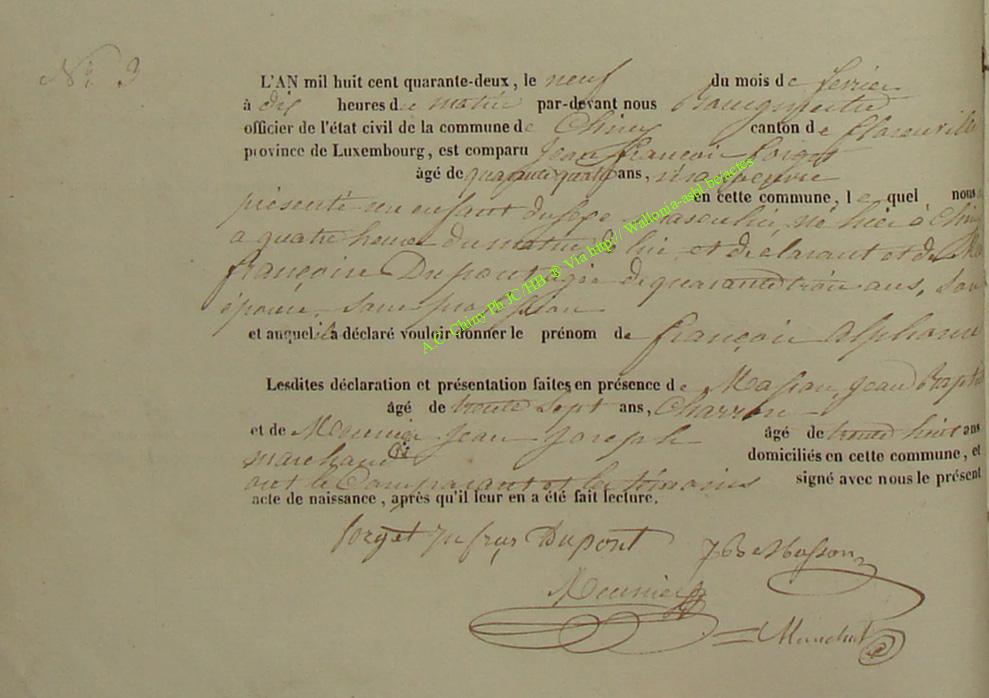 N° 3
L'AN mil huit cent quarante-deux, le neuf du mois de fevrier
à dix heures du matin par-devant nous Bourgmestre
officier de l'état civil de la commune de Chiny canton de florenville
province de Luxembourg, est comparu Jean françois forget
âgé de quarante quatre ans, en cette commune, lequel nous a
présenté un enfant du sexe masculin, né hier à Chiny
a quatre heures du matin de lui et declarant et de
françoise Dupont agée de quarante trois ans, son
épouse, sans profession
et auquel il a déclaré vouloir donner le prénom de françois alphonse
Lesdites déclaration et présentation faites en présence de Masson Jean Baptiste
âgé de trente sept ans, Charron
et de Meunier Jean Joseph âgé de trente huit ans
marchand domiciliés en cette commune, et
ont le Comparant et les témoins signé avec nous le présent
acte de naissance, après qu'il leur en a été fait lecture.
forget Dupont JB Masson
Meunier
A.C. Chiny Ph JC/HB ® Via http// Wallonia-asbl.be/actes